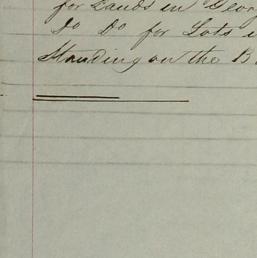 for Lands in Geor
Do Do for Lots i
Standing on the B